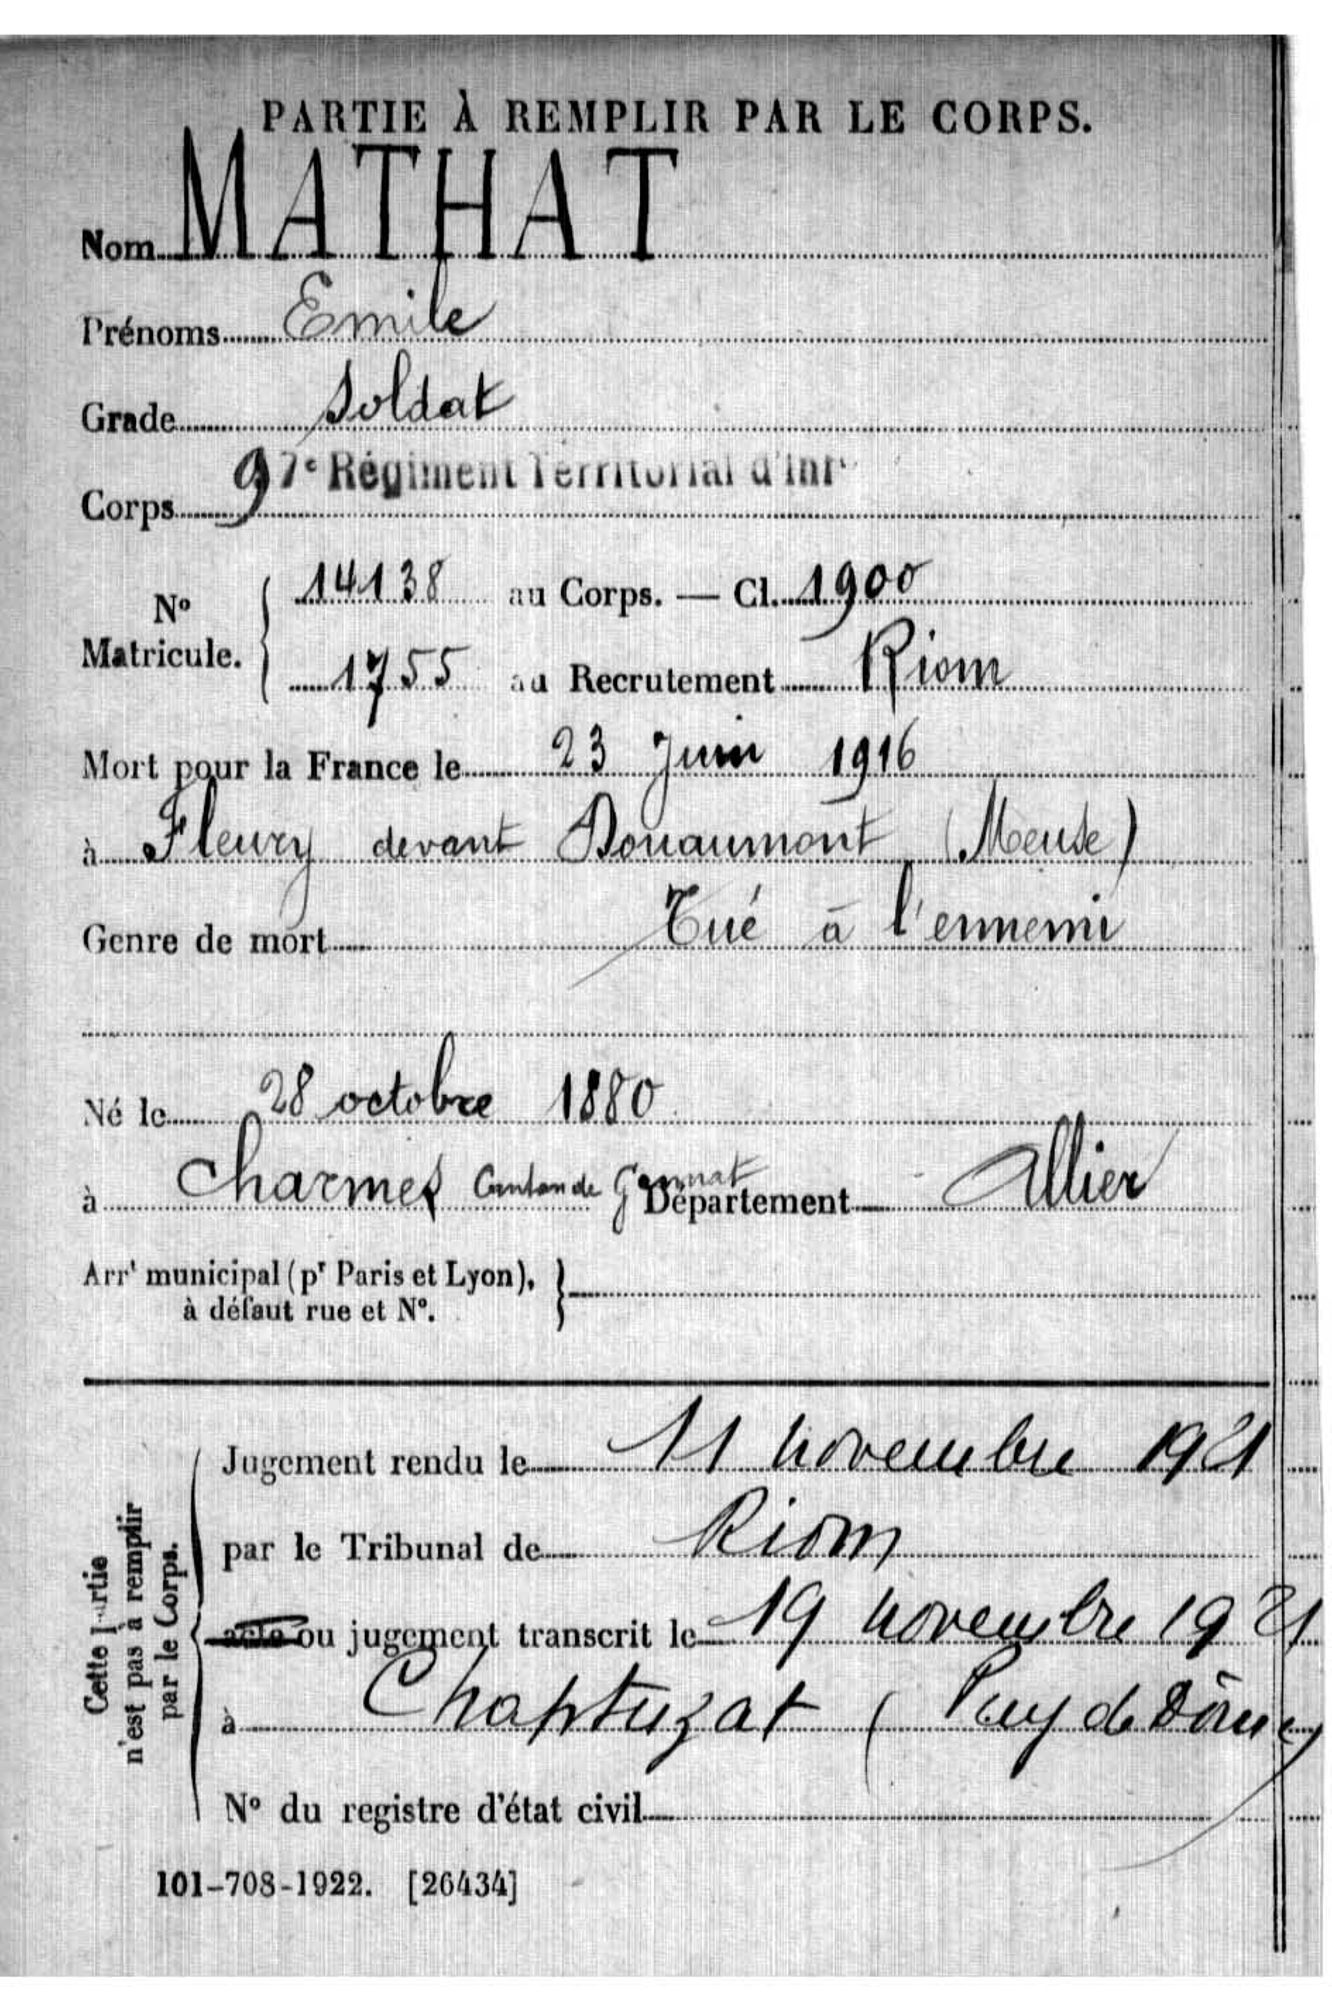 PARTIE À REMPLIR PAR LE CORPS.
Nom MATHAT
Prénoms Emile
Grade Soldat
Corps 97e Régiment Territorial d'Infie
No Matricule. { 14138 au Corps. — Cl. 1900
1755 au Recrutement Riom
Mort pour la France le 23 Juin 1916
à Fleury devant Douaumont (Meuse)
Genre de mort Tué à l'ennemi
Né le 28 octobre 1880
à Charmes Canton de Gannat Département Allier
Arrt municipal (pr Paris et Lyon), }
à défaut rue et No.
Cette partie
n'est pas à remplir
par le Corps.
Jugement rendu le 11 novembre 1921
par le Tribunal de Riom
acte ou jugement transcrit le 19 novembre 1921
à Chaptuzat (Puy de Dôme)
No du registre d'état civil
101-708-1922. [26434]